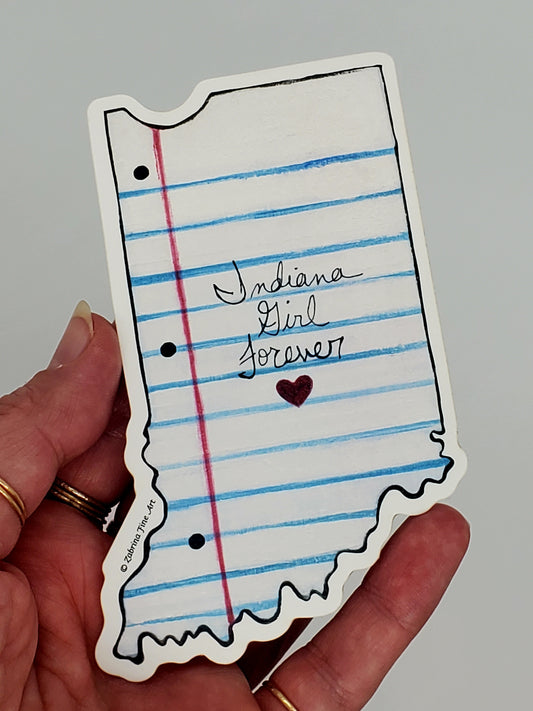 Indiana
Girl
Forever
© Zabrina Fine Art